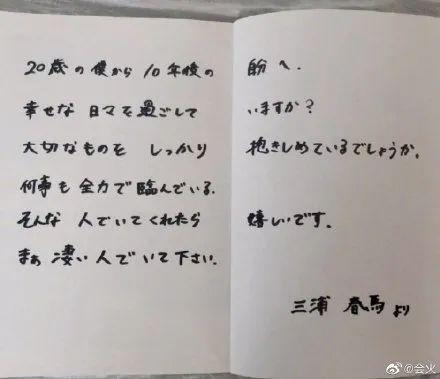 20歳の僕から10年後の自分へ.
幸せな日々を過ごしていますか?
大切なものをしっかり抱きしめているでしょうか.
何事も全力で臨んでいる.
そんな人でいてくれたら嬉しいです.
まぁ凄い人でいて下さい.
三浦春馬より
@会火